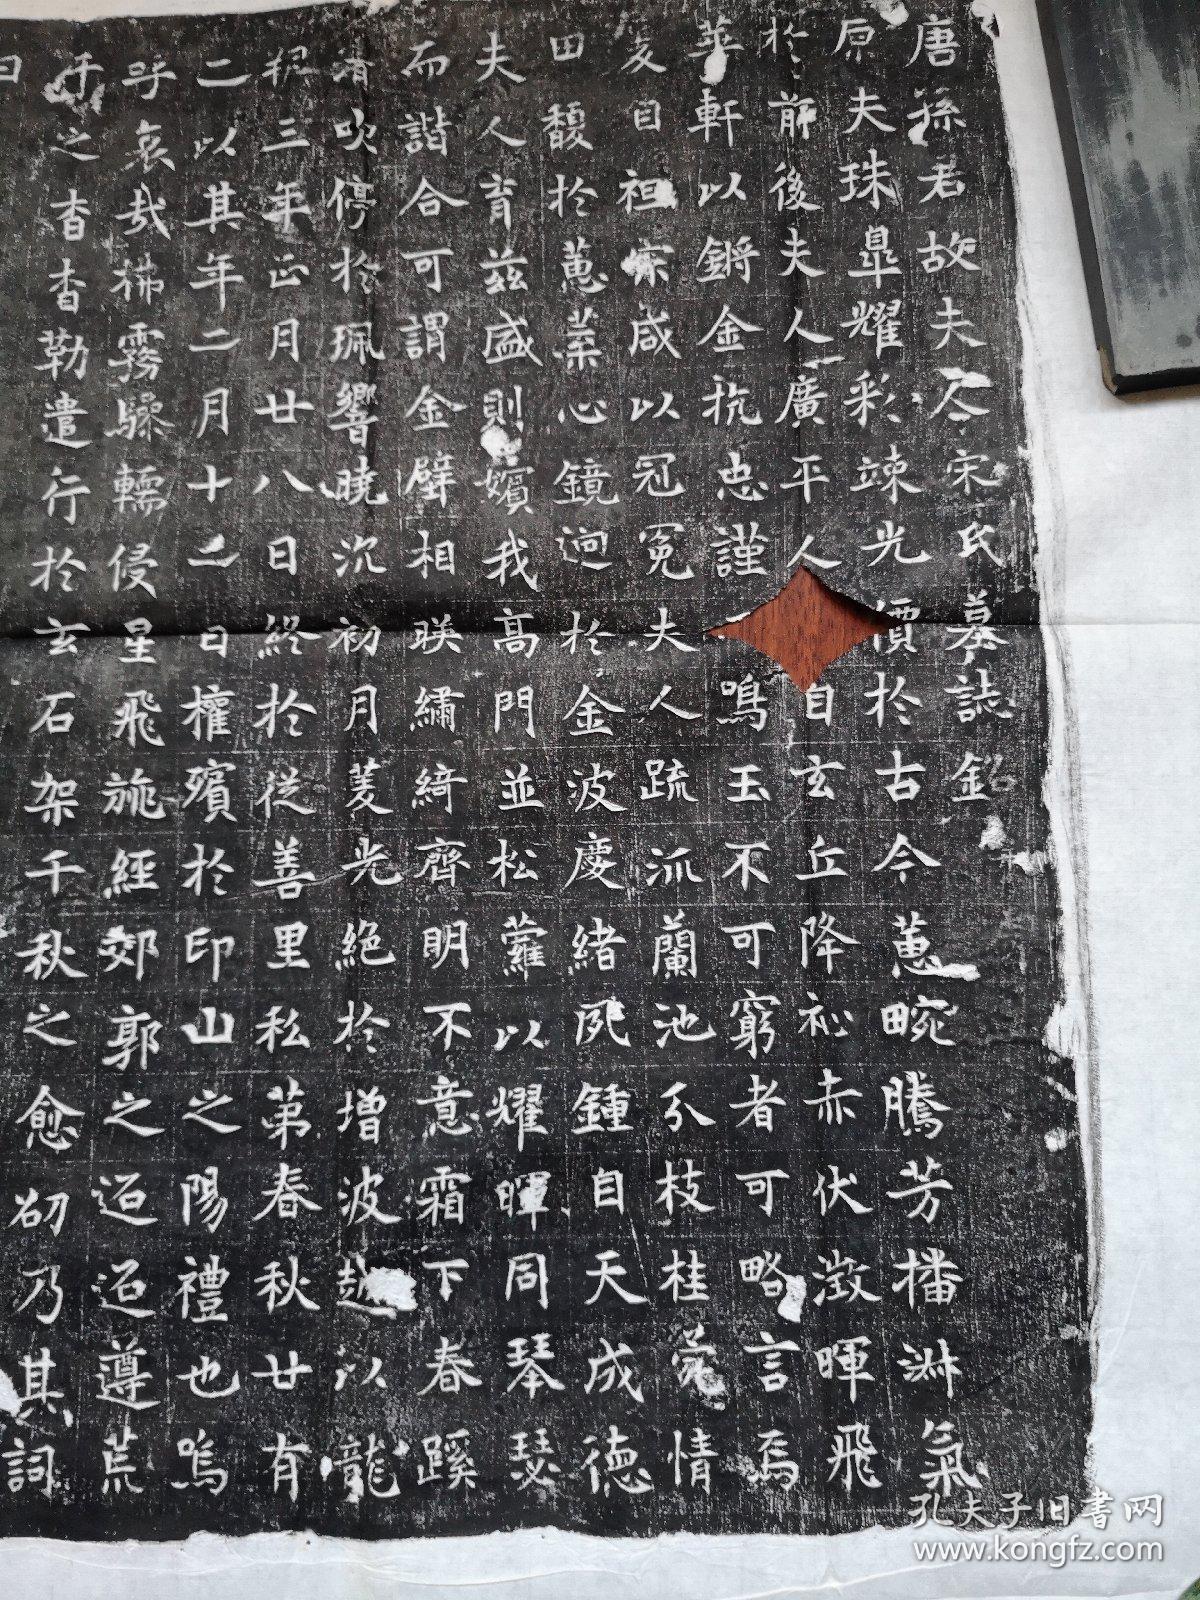 唐孫君故夫人宋氏墓誌銘
原夫珠皐耀彩竦光價於古今蕙畹騰芳播淋氣
於前後夫人廣平人自玄丘降祉赤伏澂暉飛
華軒以鏘金抗忠謹鳴玉不可窮者可略言焉
自祖宗咸以冠冕夫人疏派蘭池分枝桂菀情
田馥於蕙葉心鏡逈於金波慶緒夙鍾自天成德
夫人育茲盛則嬪我高門並松蘿以耀暉同琴瑟
而諧合可謂金璧相暎繡綺齊明不意霜下春蹊
清吹停於珮響曉沉初月菱光絕於增波越以龍
三年正月廿八日終於從善里私第春秋廿有
二以其年二月十二日權殯於印山之陽禮也嗚
呼哀哉拂霧驂轜侵星飛旐經郊郭之迢迢遵荒
之杳杳勒遣行於玄石架千秋之愈劭乃其詞
曰
孔夫子旧书网
www.kongfz.com